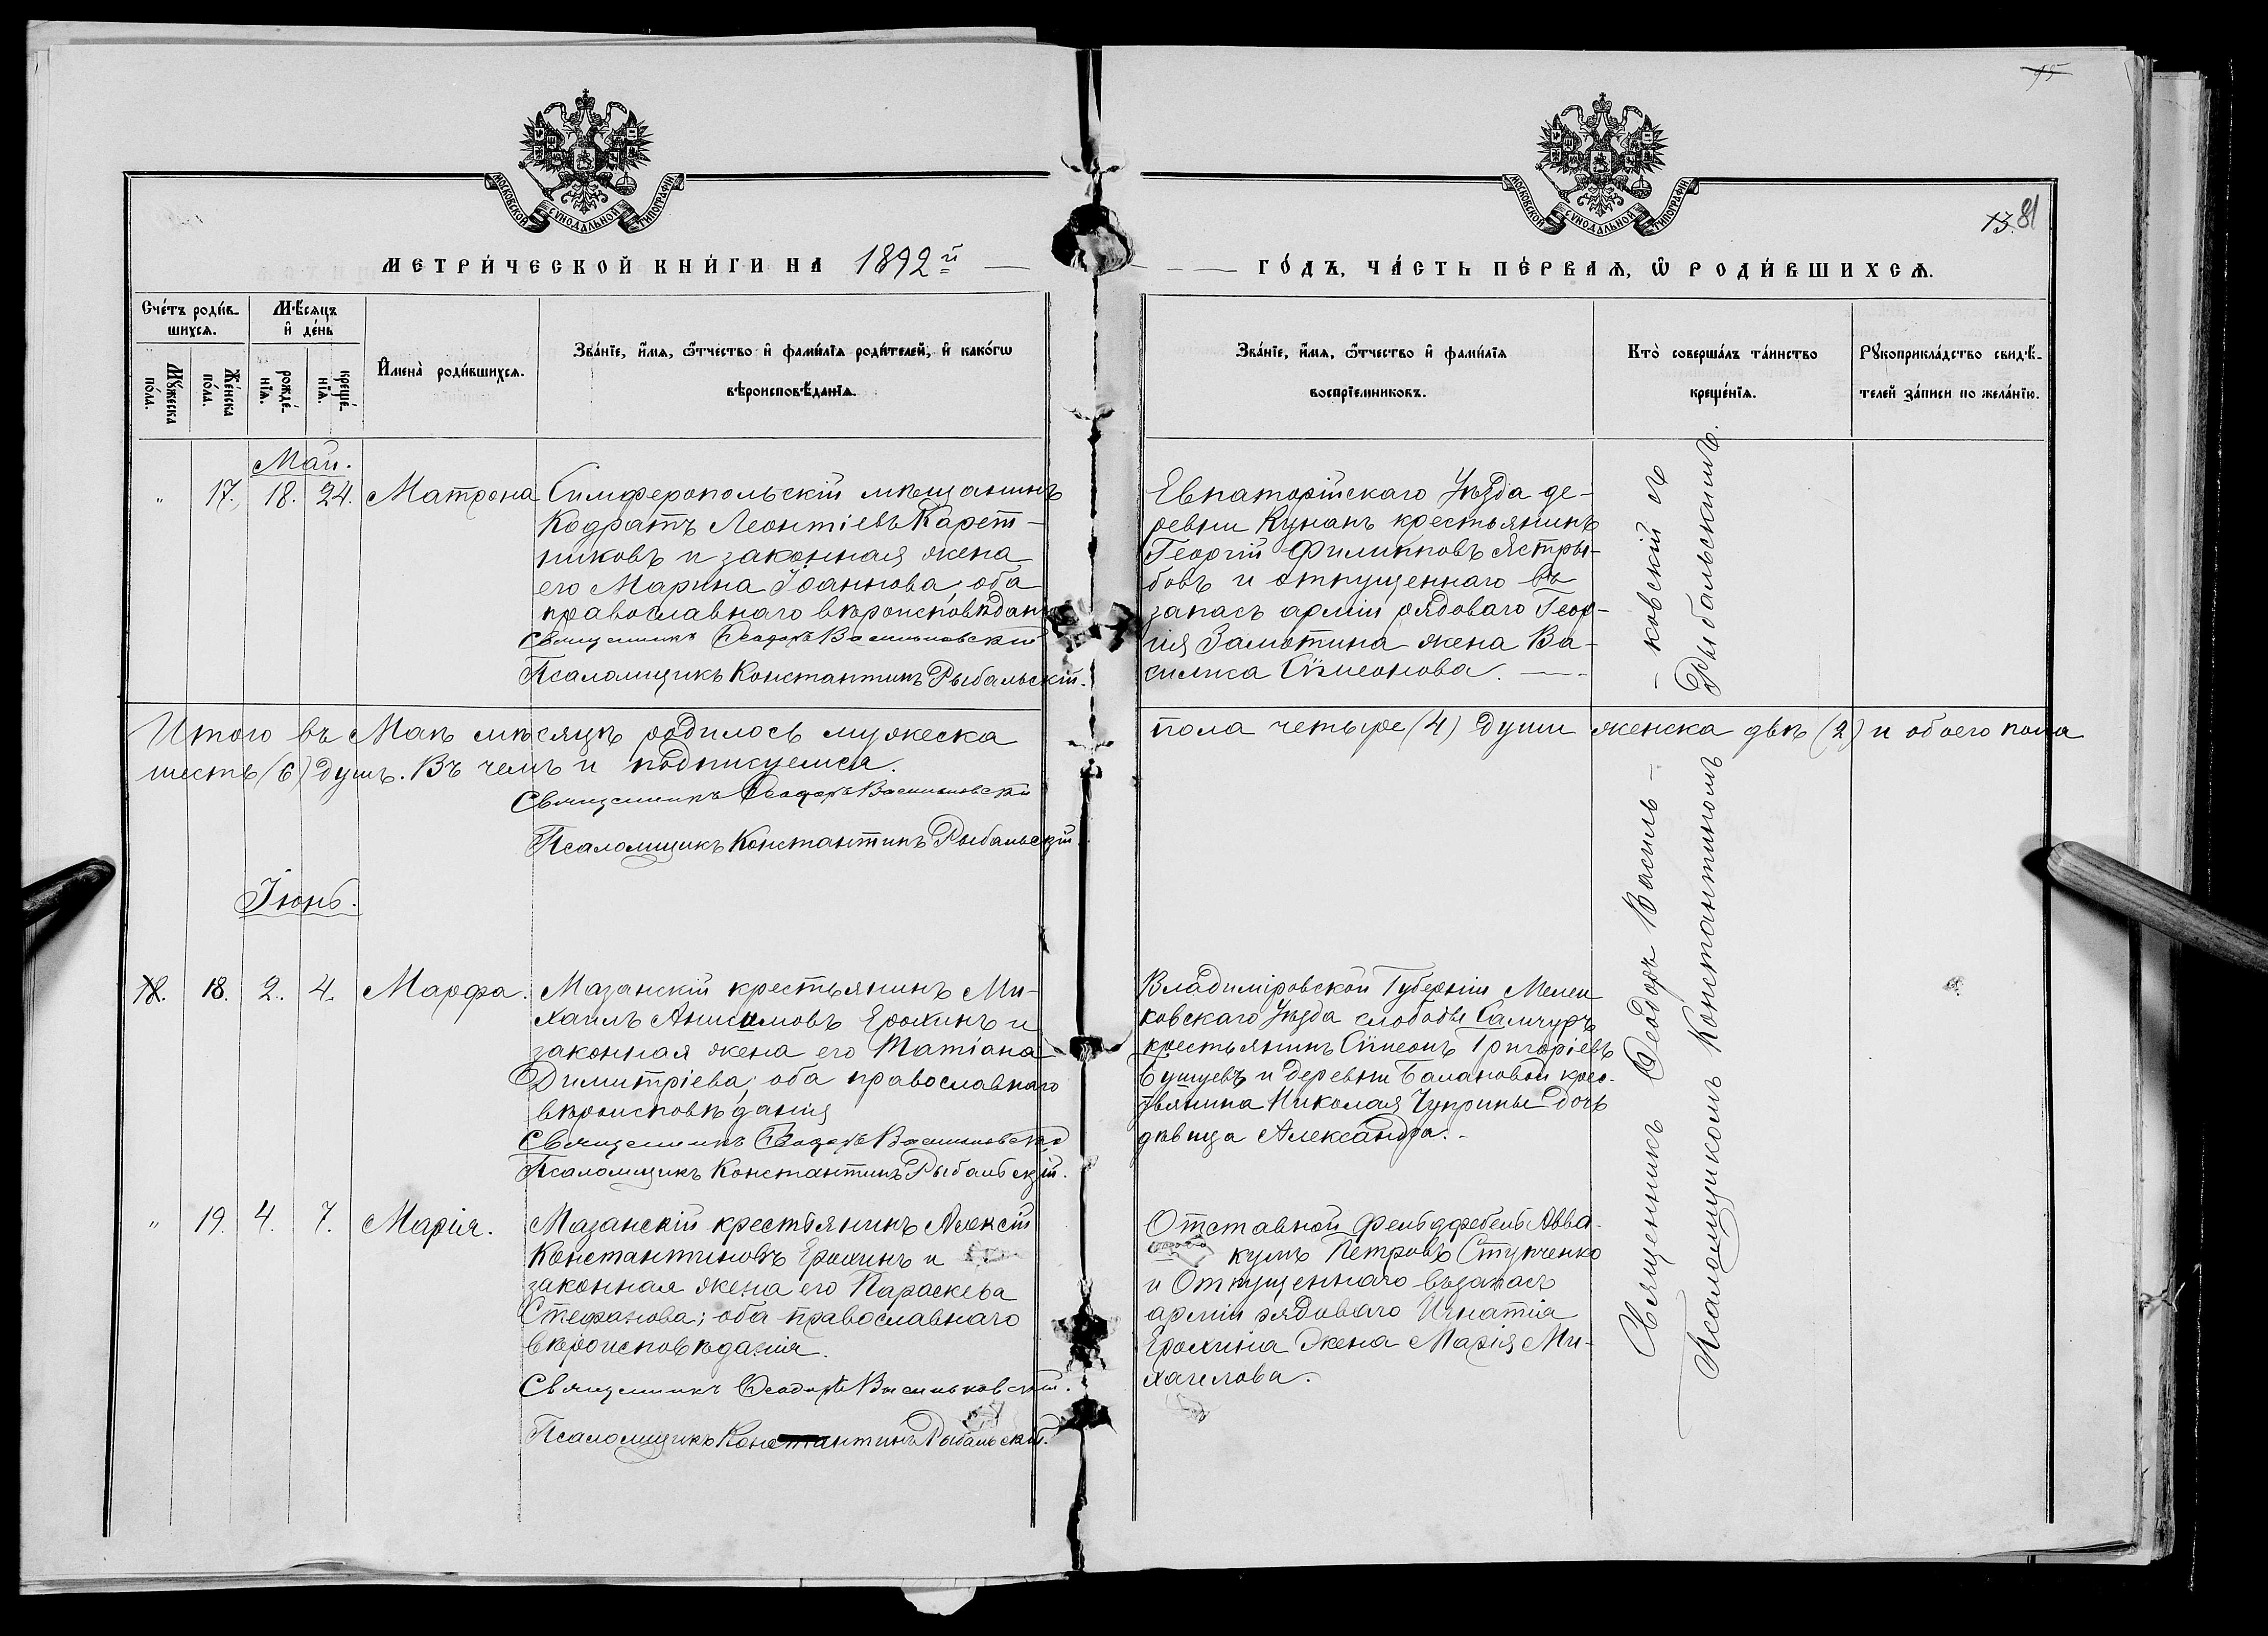 95
МОСКОВСКОЙ СѴНОДАЛЬНОЙ ТИПОГРАФІИ
МОСКОВСКОЙ СѴНОДАЛЬНОЙ ТИПОГРАФІИ
13. 81
МЕТРИ́ЧЕСКОЙ КНИ́ГИ НА 1892й
ГО́ДЪ, ЧА́СТЬ ПЕ́РВАѦ, Ѡ РОДИ́ВШИХСѦ.
Сче́тъ роди́в-
шихсѧ.
Мѣ́сѧцъ
и҆ де́нь
Мꙋ́жеска
по́ла.
Же́нска
по́ла.
рожде́-
нїѧ.
креще́-
нїѧ.
И҆мена̀ роди́вшихсѧ.
Зва́нїе, и҆́мѧ, ѻ҆́тчество и҆ фами́лїѧ роди́телей, и҆ како́гѡ
вѣроисповѣ́данїѧ.
Зва́нїе, и҆́мѧ, ѻ҆́тчество и҆ фами́лїѧ
воспрїе́мниковъ.
Кто̀ соверша́лъ та́инство
креще́нїѧ.
Рꙋкоприкла́дство свидѣ́-
телей за́писи по жела́нїю.
Май.
" 17. 18. 24. Матрона
Симферопольскій мѣщанинъ
Кодратъ Леонтіевъ Карет-
никовъ и законная жена
его Марина Іоаннова, оба
православнаго вѣроисповѣдан
Священникъ Ѳеодоръ Васильковскій
Псаломщикъ Константинъ Рыбальскій.
Евпаторійскаго Уѣзда де-
ревни Кунанъ крестьянинъ
Георгій Филипповъ Ястры-
бовъ и отпущеннаго въ
запасъ арміи рядоваго Геор-
гія Замотина жена Ва-
силиса Сѵмеонова.
Итого въ Маѣ мѣсяцѣ родилось мужеска пола четыре (4) души женска двѣ (2) и обоего пола
шесть (6) душъ. Въ чемъ и подписуемся.
Священникъ Ѳеодоръ Васильковскій
Псаломщикъ Константинъ Рыбальскій.
Іюнь.
18. 18. 2. 4. Марфа.
Мазанскій крестьянинъ Ми-
хаилъ Анисимовъ Ерохинъ и
законная жена его Татіана
Димитріева; оба православнаго
вѣроисповѣданія
Священникъ Ѳеодоръ Васильковскій
Псаломщикъ Константинъ Рыбальскій.
Владиміровской Губерніи Мелен
ковскаго Уѣзда слободы
крестьянинъ Сѵмеонъ Григоріевъ
и деревни Балановой крес-
тьянина Николая Чуприны дочь
дѣвица Александра.
" 19. 4. 7. Марія.
Мазанскій крестьянинъ Алексій
Константиновъ Ерохинъ и
законная жена его Параскева
Стефанова; оба православнаго
вѣроисповѣданія.
Священникъ Ѳеодоръ Васильковскій.
Псаломщикъ Константинъ Рыбальскій.
Отставной фельдфебель Авва-
кумъ Петровъ Ступченко
и Отпущеннаго въ запасъ
арміи рядоваго Игнатія
Ерохина Жена Марія Ми-
хаилова.
Священникъ Ѳеодоръ Василь-
-ковскій съ
Псаломщикомъ Константиномъ
Рыбальскимъ.